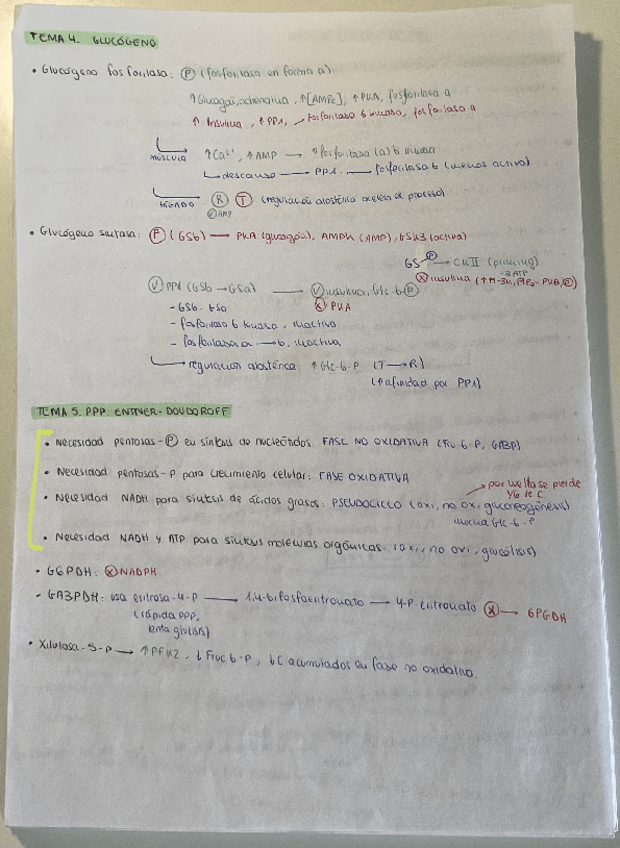 TEMA 4. GLUCÓGENO
• Glucógeno fosforilasa: Ⓟ (fosforilasa en forma a)
↑Glucagón, adrenalina, ↑[AMPc], ↑PKA, fosforilasa a
↑ Insulina, ↑PP1, fosforilasa b inactiva, fosforilasa a
MÚSCULO ↑Ca²⁺, ↑AMP → ↑fosforilasa (a) b
descanso → PP1 → fosforilasa b (menos activa)
HÍGADO Ⓡ Ⓣ (regulación alostérica acelera el proceso)
AMP
• Glucógeno sintasa: Ⓟ (GSb) → PKA (glucagón), AMPK (AMP), GSK3 (activa)
GS Ⓟ → CKII (priming)
ⓧ insulina
PP1 (GSb → GSa) → insulina, Glc-6-Ⓟ
ⓧ PKA
- GSb - GSa
- fosforilasa b kinasa, inactiva
- fosforilasa a → b, inactiva
regulación alostérica: ↑Glc-6-P (T → R)
(↑afinidad por PP1)
TEMA 5. PPP. ENTNER-DOUDOROFF
• Necesidad pentosas-Ⓟ en síntesis de nucleótidos. FASE NO OXIDATIVA (Fru 6-P, GA3P)
• Necesidad pentosas-P para crecimiento celular: FASE OXIDATIVA
por vuelta se pierde
1/6 de C
• Necesidad NADH para síntesis de ácidos grasos. PSEUDOCICLO (oxi, no oxi, gluconeogénesis)
mucha Glc-6-P
• Necesidad NADH y ATP para síntesis moléculas orgánicas. (oxi, no oxi, glucólisis)
• G6PDH: ⓧ NADPH
• GA3PDH: usa eritrosa-4-P → 1,4-bifosfoeritronato → 4-P-eritronato ⓧ → 6PGDH
(rápida PPP,
lenta glucólisis)
• Xilulosa-5-P → ↑PFK2, ↓Fruc 6-P, ↓C acumulados en fase no oxidativa.